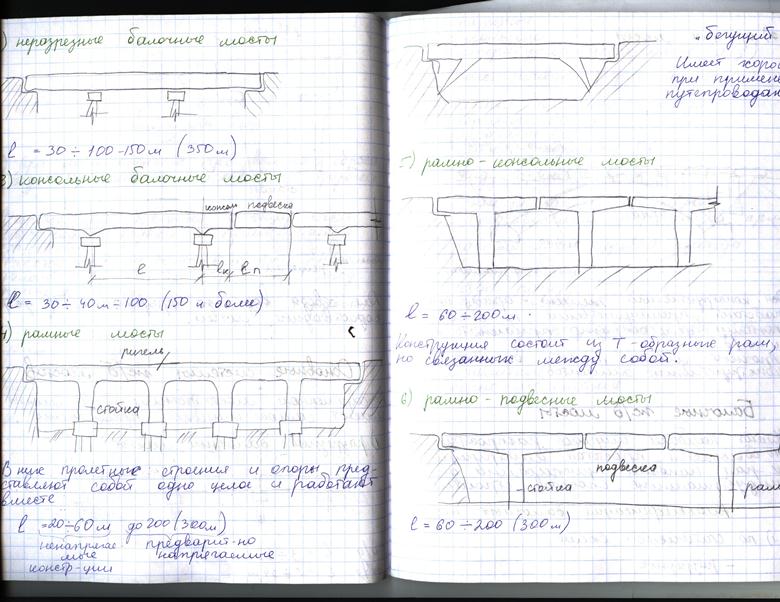 ) неразрезные балочные мосты
l = 30 ÷ 100-150 м (350 м)
3) консольные балочные мосты
консоль подвеска
l lк lп
l = 30 ÷ 40 м ÷ 100 (150 и более)
4) рамные мосты
ригель
стойка
В них пролетные строения и опоры пред-
ставляют собой одно целое и работают
вместе
l = 20 ÷ 60 м до 200 (300 м)
ненапрягае предварит-но
мые напрягаемые
констр-ции
"бегущий
Имеет хорош
при примене
путепроводах
5) рамно-консольные мосты
l = 60 ÷ 200 м.
Конструкция состоит из Т-образных рам,
но связанных между собой.
6) рамно-подвесные мосты
подвеска
стойка
рам
l = 60 ÷ 200 (300 м)